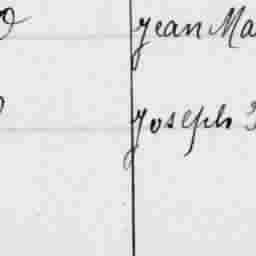 Jean Ma
Joseph